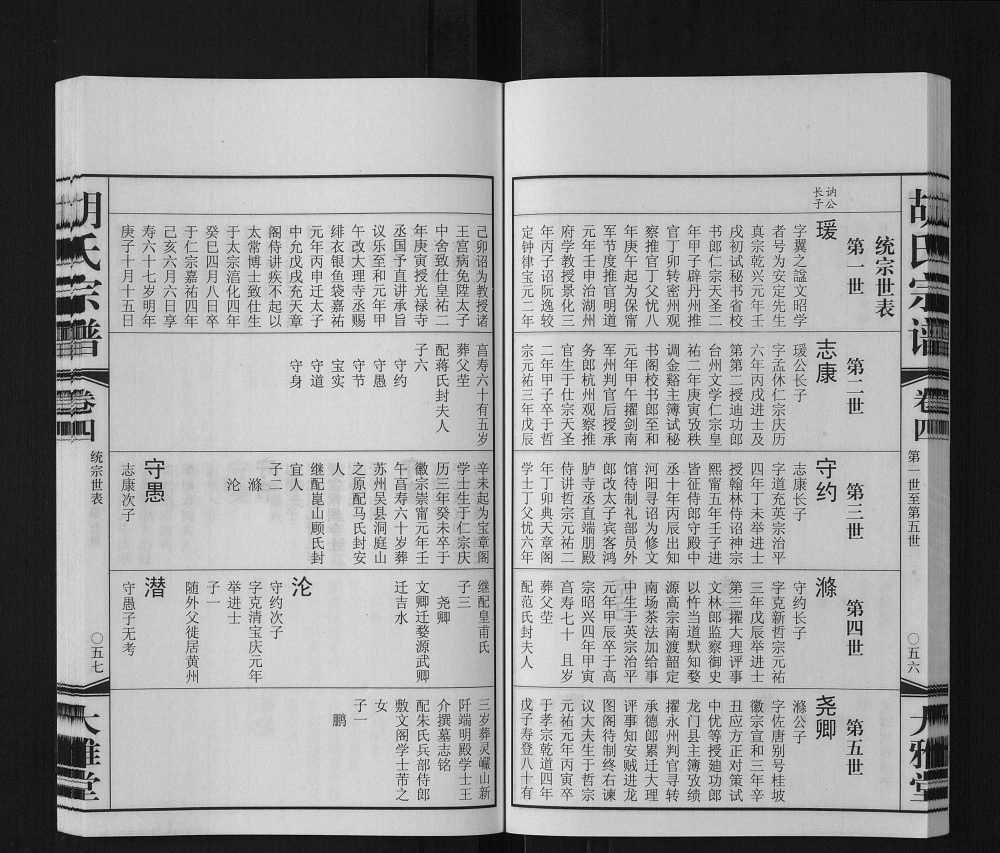 胡氏宗谱
卷四
第一世至第五世
〇五六
大雅堂
统宗世表
第一世
讷公
长子
瑗
字翼之諡文昭学
者号为安定先生
真宗乾兴元年壬
戌初试秘书省校
书郎仁宗天圣二
年甲子辟丹州推
官丁卯转密州观
察推官丁父忧八
年庚午起为保甯
军节度推官明道
元年壬申治湖州
府学教授景化三
年丙子诏阮逸较
定钟律宝元二年
第二世
志康
瑗公长子
字孟休仁宗庆历
六年丙戌进士及
第第二授迪功郎
台州文学仁宗皇
祐二年庚寅攷秩
调金谿主簿试秘
书阁校书郎至和
元年甲午擢剑南
军州判官后授承
务郎杭州观察推
官生于仕宗天圣
二年甲子卒于哲
宗元祐三年戊辰
第三世
守约
志康长子
字道充英宗治平
四年丁未举进士
授翰林侍诏神宗
熙甯五年壬子进
皆征侍郎守殿中
丞十年丙辰出知
河阳寻诏为修文
馆待制礼部员外
郎改太子宾客鸿
胪寺丞直端朋殿
侍讲哲宗元祐二
年丁卯典天章阁
学士丁父忧六年
第四世
滌
守约长子
字克新哲宗元祐
三年戊辰举进士
第三擢大理评事
文林郎监察御史
以忤当道默知婺
源高宗南渡韶定
南场茶法加给事
中生于英宗治平
元年甲辰卒于高
宗昭兴四年甲寅
亯寿七十　且岁
葬父茔
配范氏封夫人
第五世
尧卿
滌公子
字佐唐别号桂坡
徽宗宣和三年辛
丑应方正对策试
中优等授廸功郎
龙门县主簿攷绩
擢永州判官寻转
承德郎累迁大理
评事知安贼进龙
图阁待制终右谏
议大夫生于哲宗
元祐元年丙寅卒
于孝宗乾道四年
戊子寿登八十有
己卯诏为教授诸
王宫病免陞太子
中舍致仕皇祐二
年庚寅授光禄寺
丞国予直讲承旨
议乐至和元年甲
午改大理寺丞赐
绯衣银鱼袋嘉祐
元年丙申迁太子
中允戊戌充天章
阁侍讲疾不起以
太常博士致仕生
于太宗淯化四年
癸巳四月八日卒
于仁宗嘉祐四年
己亥六月六日享
寿六十七岁明年
庚子十月十五日
亯寿六十有五岁
葬父茔
配蒋氏封夫人
子六
守约
守愚
守节
宝实
守道
守身
辛未起为宝章阁
学士生于仁宗庆
历三年癸未卒于
徽宗崇甯元年壬
午亯寿六十岁葬
苏州吴县洞庭山
之原配马氏封安
人
继配崑山顾氏封
宜人
子二
滌
沦
守愚
志康次子
继配皇甫氏
子三
尧卿
文卿迁婺源武卿
迁吉水
沦
守约次子
字克清宝庆元年
举进士
子一
随外父徙居黄州
潜
守愚子无考
三岁葬灵巗山新
阡端明殿学士王
介撰墓志铭
配朱氏兵部侍郎
敷文阁学士芾之
女
子一
鹏
胡氏宗谱
卷四
统宗世表
〇五七
大雅堂